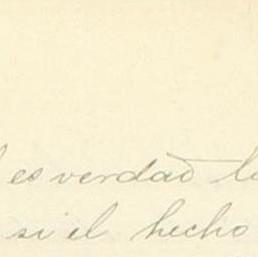 es verdad
si el hecho